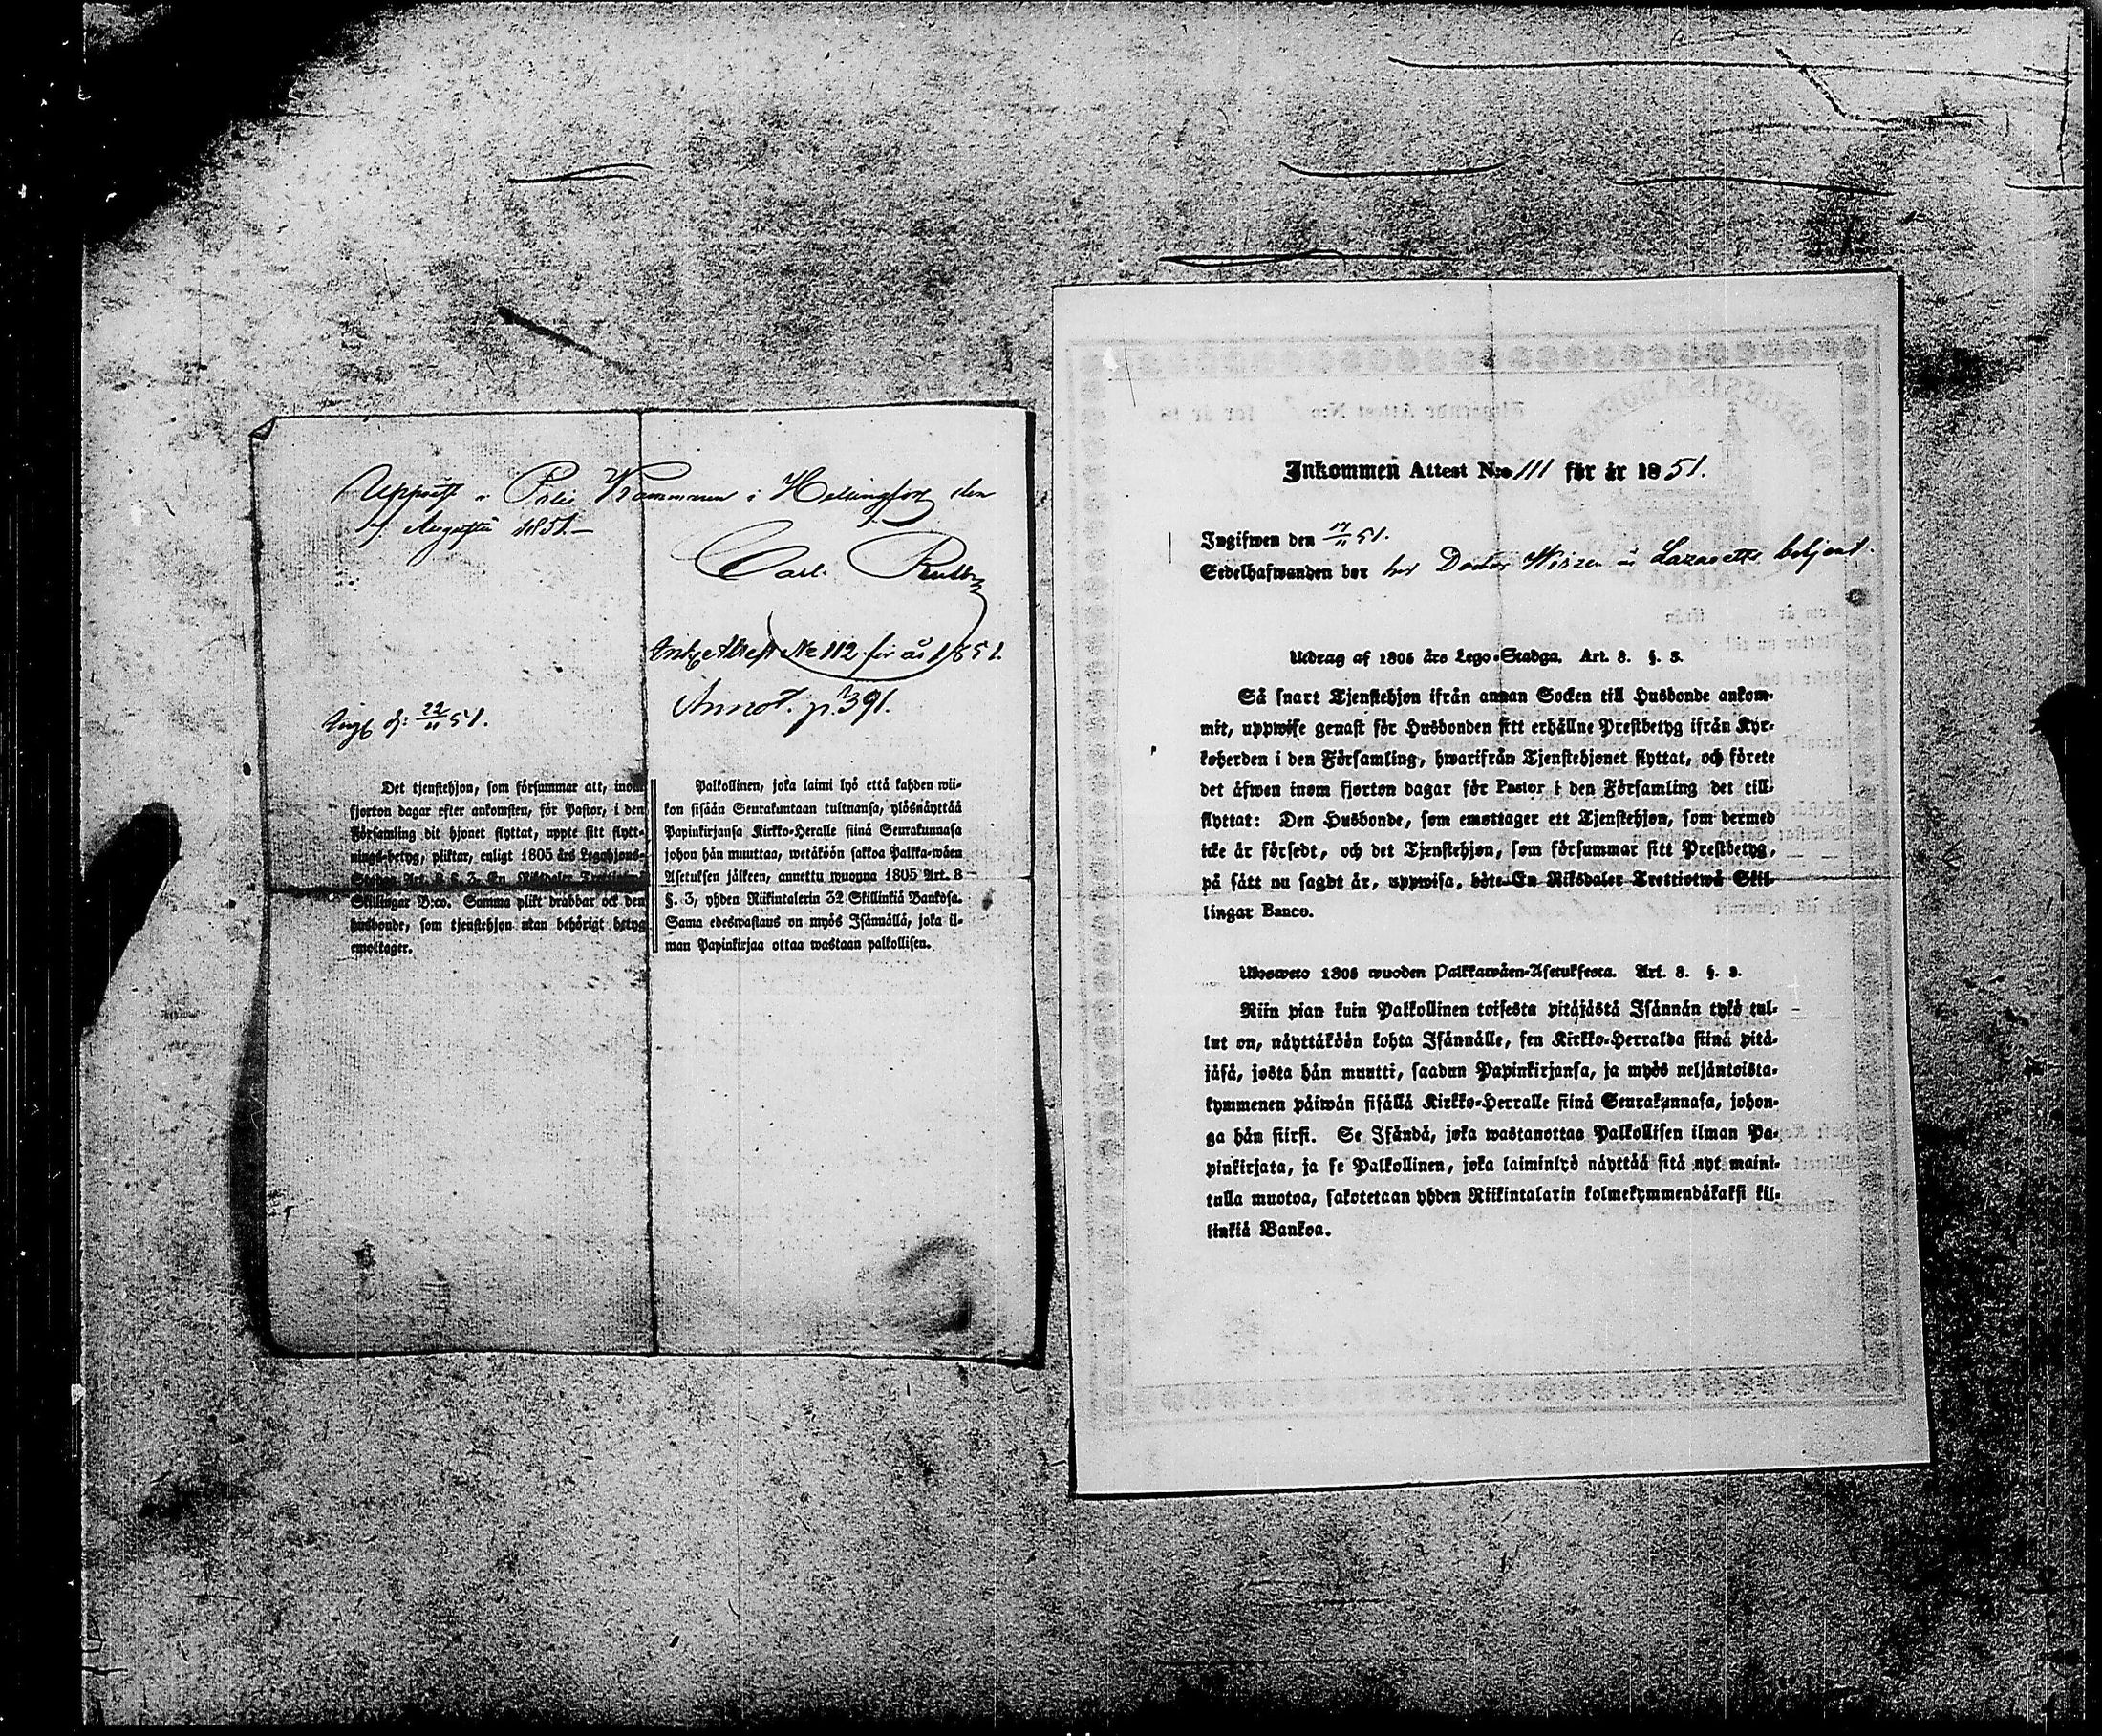 Uppvist i Polis Kammaren i Helsingfors den
Augusti 1851.—
Carl
Ink. Attest No 112 för år 1851.
Annot. p. 391.
Ingf d: 22/11 51.
Det tjenstehjon, som försummar att, inom
fjorton dagar efter ankomsten, för Pastor, i den
Församling dit hjonet flyttat, uppte sitt flytt-
nings-betyg, pliktar, enligt 1805 års Legohjons-
Stadga Art. 8 §. 3, En Riksdaler Trettiotwå
Skillingar B:co. Samma plikt drabbar ock den
husbonde, som tjenstehjon utan behörigt betyg
emottager.
Palkollinen, joka laimi lyö että kahden wii-
kon sisään Seurakuntaan tultuansa, ylösnäyttää
Papinkirjansa Kirkko-Heralle siinä Seurakunnasa
johon hän muuttaa, wetäköön sakkoa Palkka-wäen
Asetuksen jälkeen, annettu wuonna 1805 Art. 8
§. 3, yhden Riikintalerin 32 Skillinkiä Bankosa.
Sama edeswastaus on myös Isännällä, joka il-
man Papinkirjaa ottaa wastaan palkollisen.
Inkommen Attest N:o 111 för år 1851.
Ingifwen den 17/11 51.
Sedelhafwanden bor hos Doctor Lazaretts betjent.
Utdrag af 1805 års Lego-Stadga. Art. 8. §. 3.
Så snart Tjenstehjon ifrån annan Socken till Husbonde ankom-
mit, uppwise genast för Husbonden sitt erhållne Prestbetyg ifrån Kyr-
koherden i den Församling, hwarifrån Tjenstehjonet flyttat, och förete
det äfwen inom fjorton dagar för Pastor i den Församling det till-
flyttat: Den Husbonde, som emottager ett Tjenstehjon, som dermed
icke är försedt, och det Tjenstehjon, som försummar sitt Prestbetyg,
på sätt nu sagdt är, uppwisa, böte En Riksdaler Trettiotwå Skil-
lingar Banco.
Ulosweto 1805 wuoden Palkkawäen-Asetuksesta. Art. 8. §. 3.
Niin pian kuin Palkollinen toisesta pitäjästä Isännän tykö tul-
lut on, näyttäköön kohta Isännälle, sen Kirkko-Herralda siinä pitä-
jäsä, josta hän muutti, saadun Papinkirjansa, ja myös neljäntoista-
kymmenen päiwän sisällä Kirkko-Herralle siinä Seurakunnasa, johon-
ga hän siirsi. Se Isändä, joka wastanottaa Palkollisen ilman Pa-
pinkirjata, ja se Palkollinen, joka laiminlyö näyttää sitä nyt maini-
tulla muotoa, sakotetaan yhden Riikintalarin kolmekymmendäkaksi kil-
linkiä Bankoa.